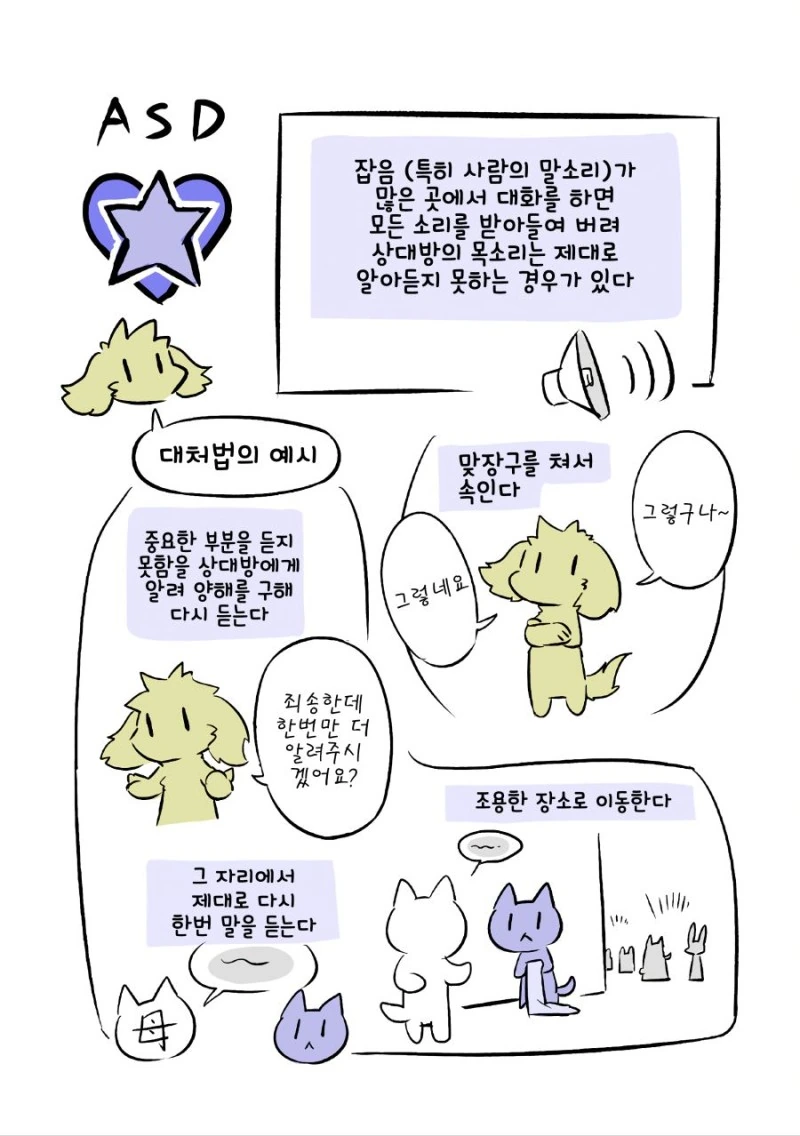 ASD
잡음 (특히 사람의 말소리)가
많은 곳에서 대화를 하면
모든 소리를 받아들여 버려
상대방의 목소리는 제대로
알아듣지 못하는 경우가 있다
대처법의 예시
맞장구를 쳐서
속인다
그렇구나~
그렇네요
중요한 부분을 듣지
못함을 상대방에게
알려 양해를 구해
다시 듣는다
죄송한데
한번만 더
알려주시
겠어요?
조용한 장소로 이동한다
그 자리에서
제대로 다시
한번 말을 듣는다
母